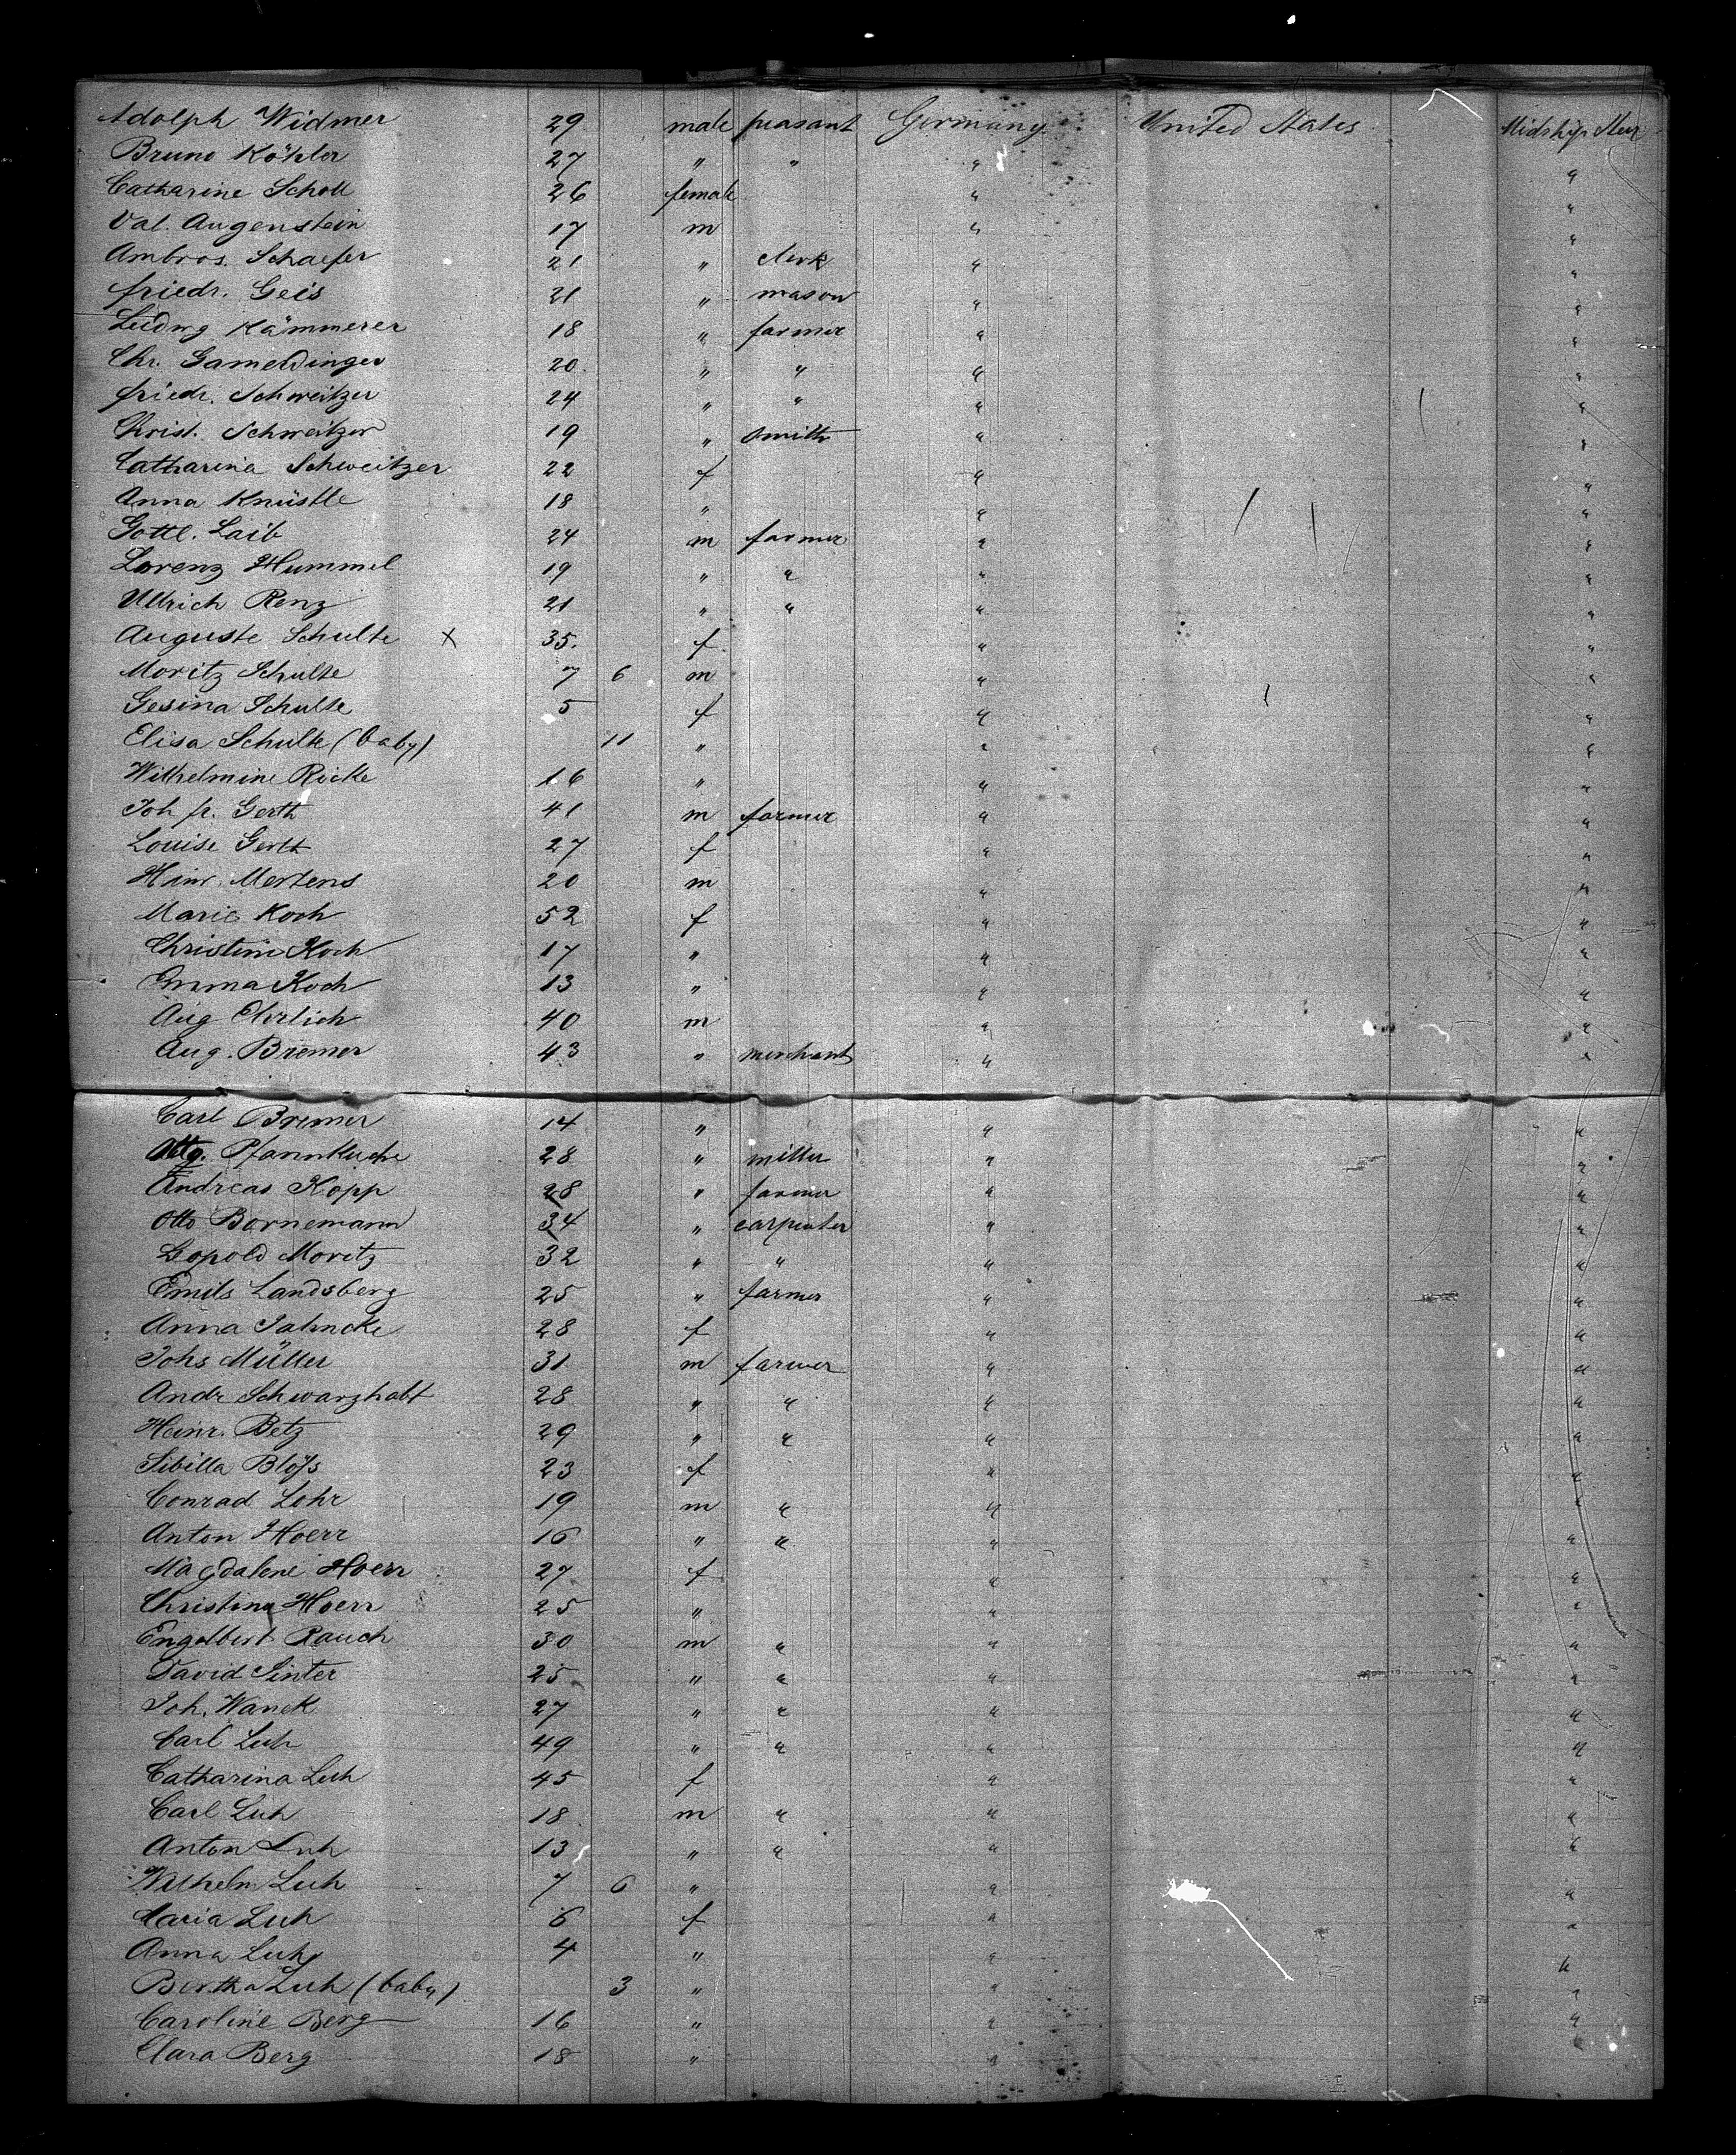 Adolph Widmer 29 male peasant Germany United States Midship Steer
Bruno Köhler 27 " " "  "
Catharine Scholl 26 female " "
Val. Augenstein 17 m " "
Ambros. Schaefer 21 " clerk " "
friedr. Geis 21 " mason " "
Ludwg Kämmerer 18 " farmer " "
Chr. Gameldinger 20 " " " "
friedr. Schweitzer 24 " " " "
Christ. Schweitzer 19 " smith " "
Catharina Schweitzer 22 f " "
Anna Knüstle 18 " " "
Gottl. Laib 24 m farmer " "
Lorenz Hummel 19 " " " "
Ullrich Renz 21 " " " "
Auguste Schulte X 35. f " "
Moritz Schulte 7 6 m " "
Gesina Schulte 5 f " "
Elisa Schulte (baby) 11 " " "
Wilhelmine Ricke 16 " " "
Joh fr. Gerth 41 m farmer " "
Louise Gerth 27 f " "
Heinr. Mertens 20 m " "
Marie Koch 52 f " "
Christine Koch 17 " " "
Emma Koch 13 " " "
Aug Ehrlich 40 m " "
Aug. Bremer 43 " merchant " "
Carl Bremer 14 " " "
Pfannkuche 28 " miller " "
Andreas Kopp 28 " farmer " "
Otto Bornemann 34 " carpenter " "
Leopold Moritz 32 " " " "
Emils Landsberg 25 " farmer " "
Anna Jahncke 28 f " "
Johs Müller 31 m farmer " "
Andr Schwarzhabt 28 " " " "
Heinr. Betz 29 " " " "
Sibilla Blöß 23 f " "
Conrad Lohr 19 m " " "
Anton Hoerr 16 " " " "
Magdalene Hoerr 27 f " "
Christina Hoerr 25 " " "
Engelbert Rauch 30 m " " "
David Sinter 25 " " " "
Joh. Wanek 27 " " " "
Carl Luh 49 " " " "
Catharina Luh 45 f " "
Carl Luh 18 m " " "
Anton Luh 13 " " " "
Wilhelm Luh 7 6 " " "
Maria Luh 6 f " "
Anna Luh 4 " " "
Bertha Luh (baby) 3 " " "
Caroline Berg 16 " " "
Clara Berg 18 " " "